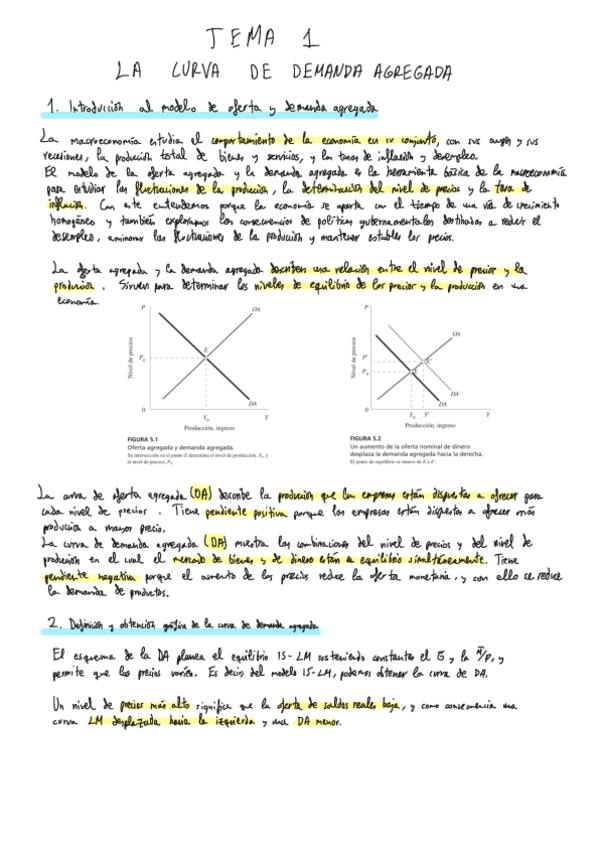 TEMA 1
LA CURVA DE DEMANDA AGREGADA
1. Introducción al modelo de oferta y demanda agregada
La macroeconomía estudia el comportamiento de la economía en su conjunto, con sus auges y sus
recesiones, la producción total de bienes y servicios, y las tasas de inflación y desempleo.
El modelo de la oferta agregada y la demanda agregada es la herramienta básica de la macroeconomía
para estudiar las fluctuaciones de la producción, la determinación del nivel de precios y la tasa de
inflación. Con este entendemos porque la economía se aparta con el tiempo de una vía de crecimiento
homogéneo y también exploramos las consecuencias de políticas gubernamentales destinadas a reducir el
desempleo, aminorar las fluctuaciones de la producción y mantener estables los precios.
La oferta agregada y la demanda agregada describen una relación entre el nivel de precios y la
producción. Sirven para determinar los niveles de equilibrio de los precios y la producción en una
economía.
P
OA
Nivel de precios
P₀
E
DA
0
Y₀
Y
Producción, ingreso
FIGURA 5.1
Oferta agregada y demanda agregada
Su intersección en el punto E determina el nivel de producción, Y₀, y
el nivel de precios, P₀
P
OA
Nivel de precios
P'
P₀
E'
E
DA'
DA
0
Y₀
Y'
Y
Producción, ingreso
FIGURA 5.2
Un aumento de la oferta nominal de dinero
desplaza la demanda agregada hacia la derecha.
El punto de equilibrio se mueve de E a E'.
La curva de oferta agregada (OA) describe la producción que las empresas están dispuestas a ofrecer para
cada nivel de precios. Tiene pendiente positiva porque las empresas están dispuestas a ofrecer más
producción a mayor precio.
La curva de demanda agregada (DA) muestra las combinaciones del nivel de precios y del nivel de
producción en el cual el mercado de bienes y de dinero están en equilibrio simultáneamente. Tiene
pendiente negativa porque el aumento de los precios reduce la oferta monetaria, y con ello se reduce
la demanda de productos.
2. Definición y obtención gráfica de la curva de demanda agregada
El esquema de la DA planea el equilibrio IS-LM sosteniendo constantes el G̅ y la M̅/P, y
permite que los precios varíen. Es decir del modelo IS-LM, podemos obtener la curva de DA.
Un nivel de precios más alto significa que la oferta de saldos reales baja, y como consecuencia una
curva LM desplazada hacia la izquierda y una DA menor.